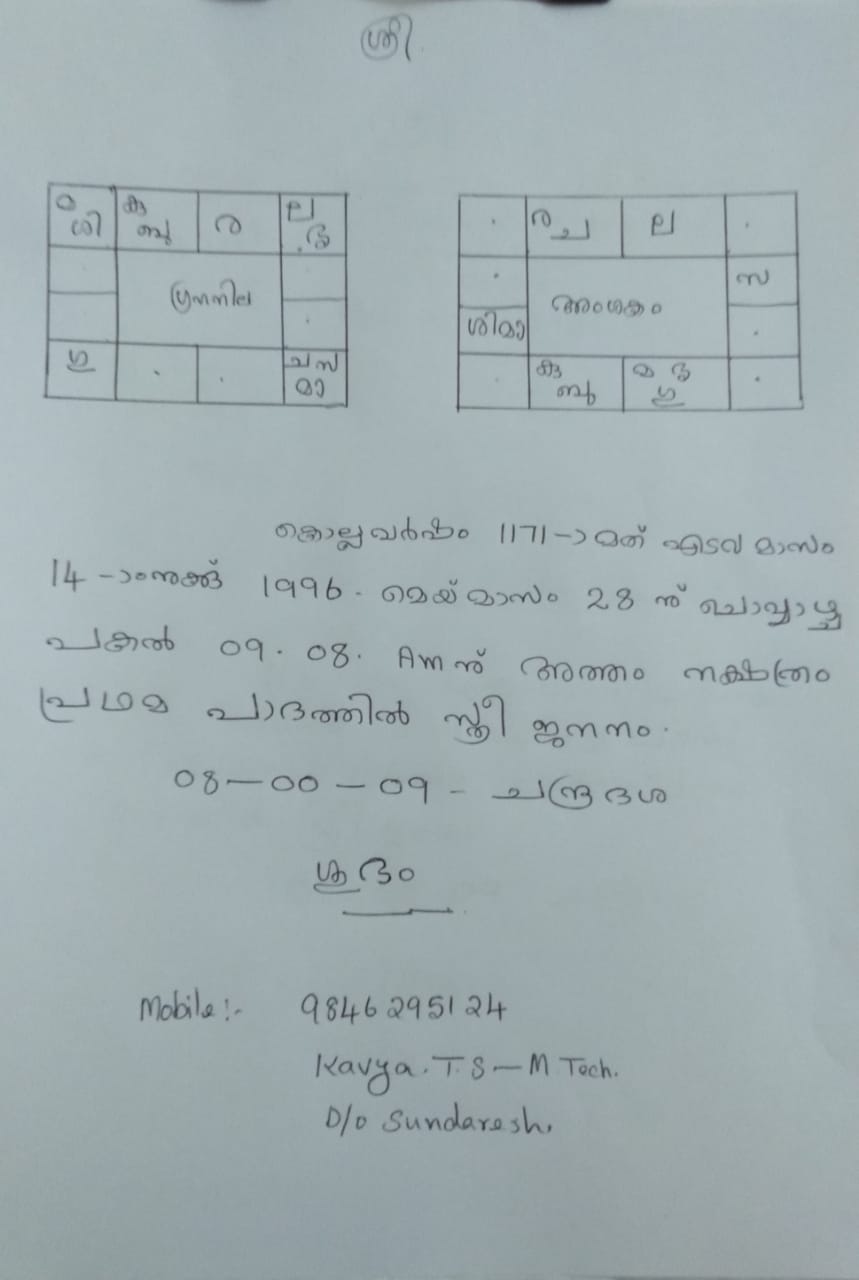 ശ്രീ.
മ കു ര ല
ശി ബു ശു
ഗ്രഹനില
ഗു ച സ
മാ
ര ച ല
സ
അംശകം
ശിമാ
കു മ ശു
ബു ഗു
കൊല്ലവർഷം 1171-ാമത് എടവ മാസം
14-ാംനുക്ക് 1996. മെയ് മാസം 28 ന് ചൊവ്വാഴ്ച
പകൽ 09. 08. Am ന് അത്തം നക്ഷത്രം
പ്രഥമ പാദത്തിൽ സ്ത്രീ ജനനം.
08-00-09 - ചന്ദ്രദശ
ശുഭം
Mobile:- 9846295124
Kavya. T. S - M Tech.
D/o Sundaresh,